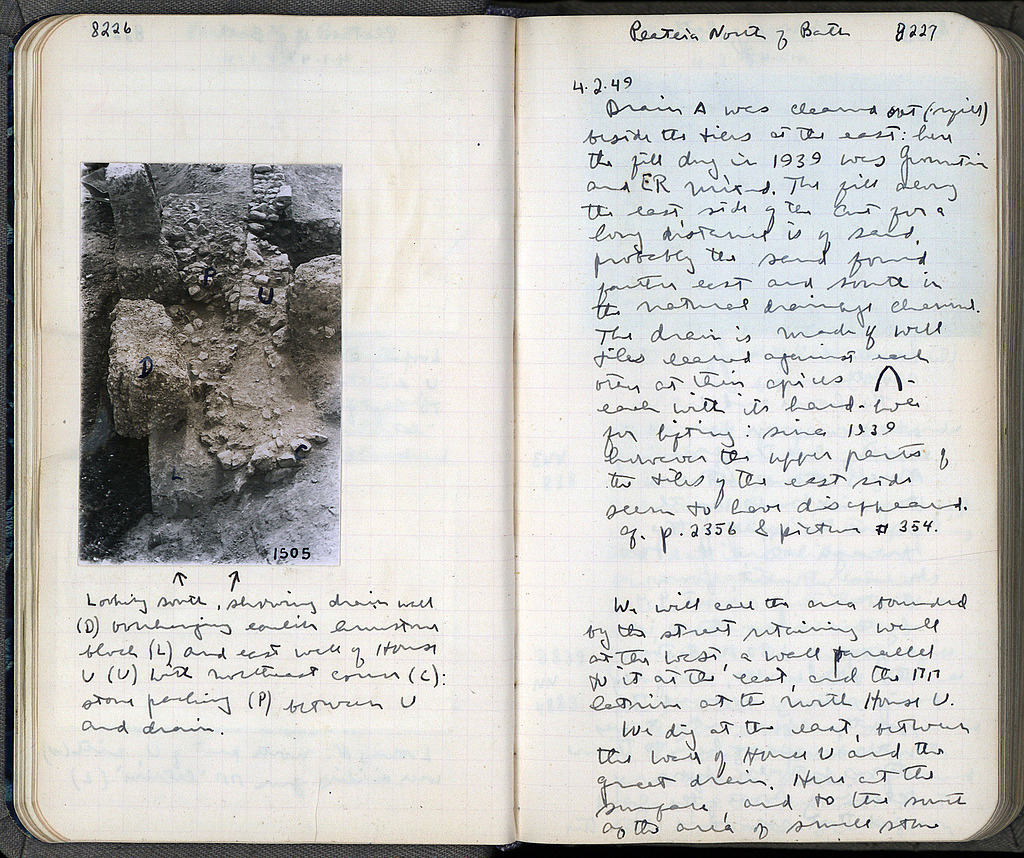 8226
P
U
D
L
C
1505
Looking south, showing drain wall
(D) overhanging earlier limestone
block (L) and east wall of House
U (U) with northeast corner (C):
stone packing (P) between U
and drain.
Plateia North of Bath 8227
4.2.49
Drain A was cleaned out
beside the tiles at the east: here
the fill dug in 1939 was
and ER mixed. The fill along
the east side of the cut for a
long distance is of sand,
probably the sand found
farther east and south in
the natural drainage channel.
The drain is made of well
tiles leaned against each
other at their apices
each with its hand-hole
for lifting: since 1939
however the upper parts of
the tiles of the east side
seem to have disappeared.
cf. p. 2356 & picture # 354.
We will call the area bounded
by the street retaining wall
at the west, a wall parallel
to it at the east, and the
latrine at the north House U.
We dig at the east, between
the wall of House U and the
great drain. Here at the
surface and to the south
of the area of small stone